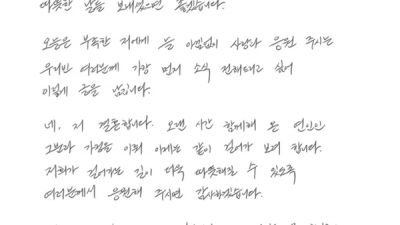 따뜻한 날들 보내셨으면 좋겠습니다.
오늘은 부족한 저에게 늘 아낌없이 사랑과 응원 주시는
우리반 여러분께 가장 먼저 소식 전해드리고 싶어
이렇게 글을 남깁니다.
네. 저 결혼합니다. 오랜 시간 함께해 온 연인인
그분과 가정을 이뤄 이제는 같이 걸어가 보려 합니다.
저희가 걸어가는 길이 더욱 따뜻해질 수 있도록
여러분께서 응원해 주시면 감사하겠습니다.